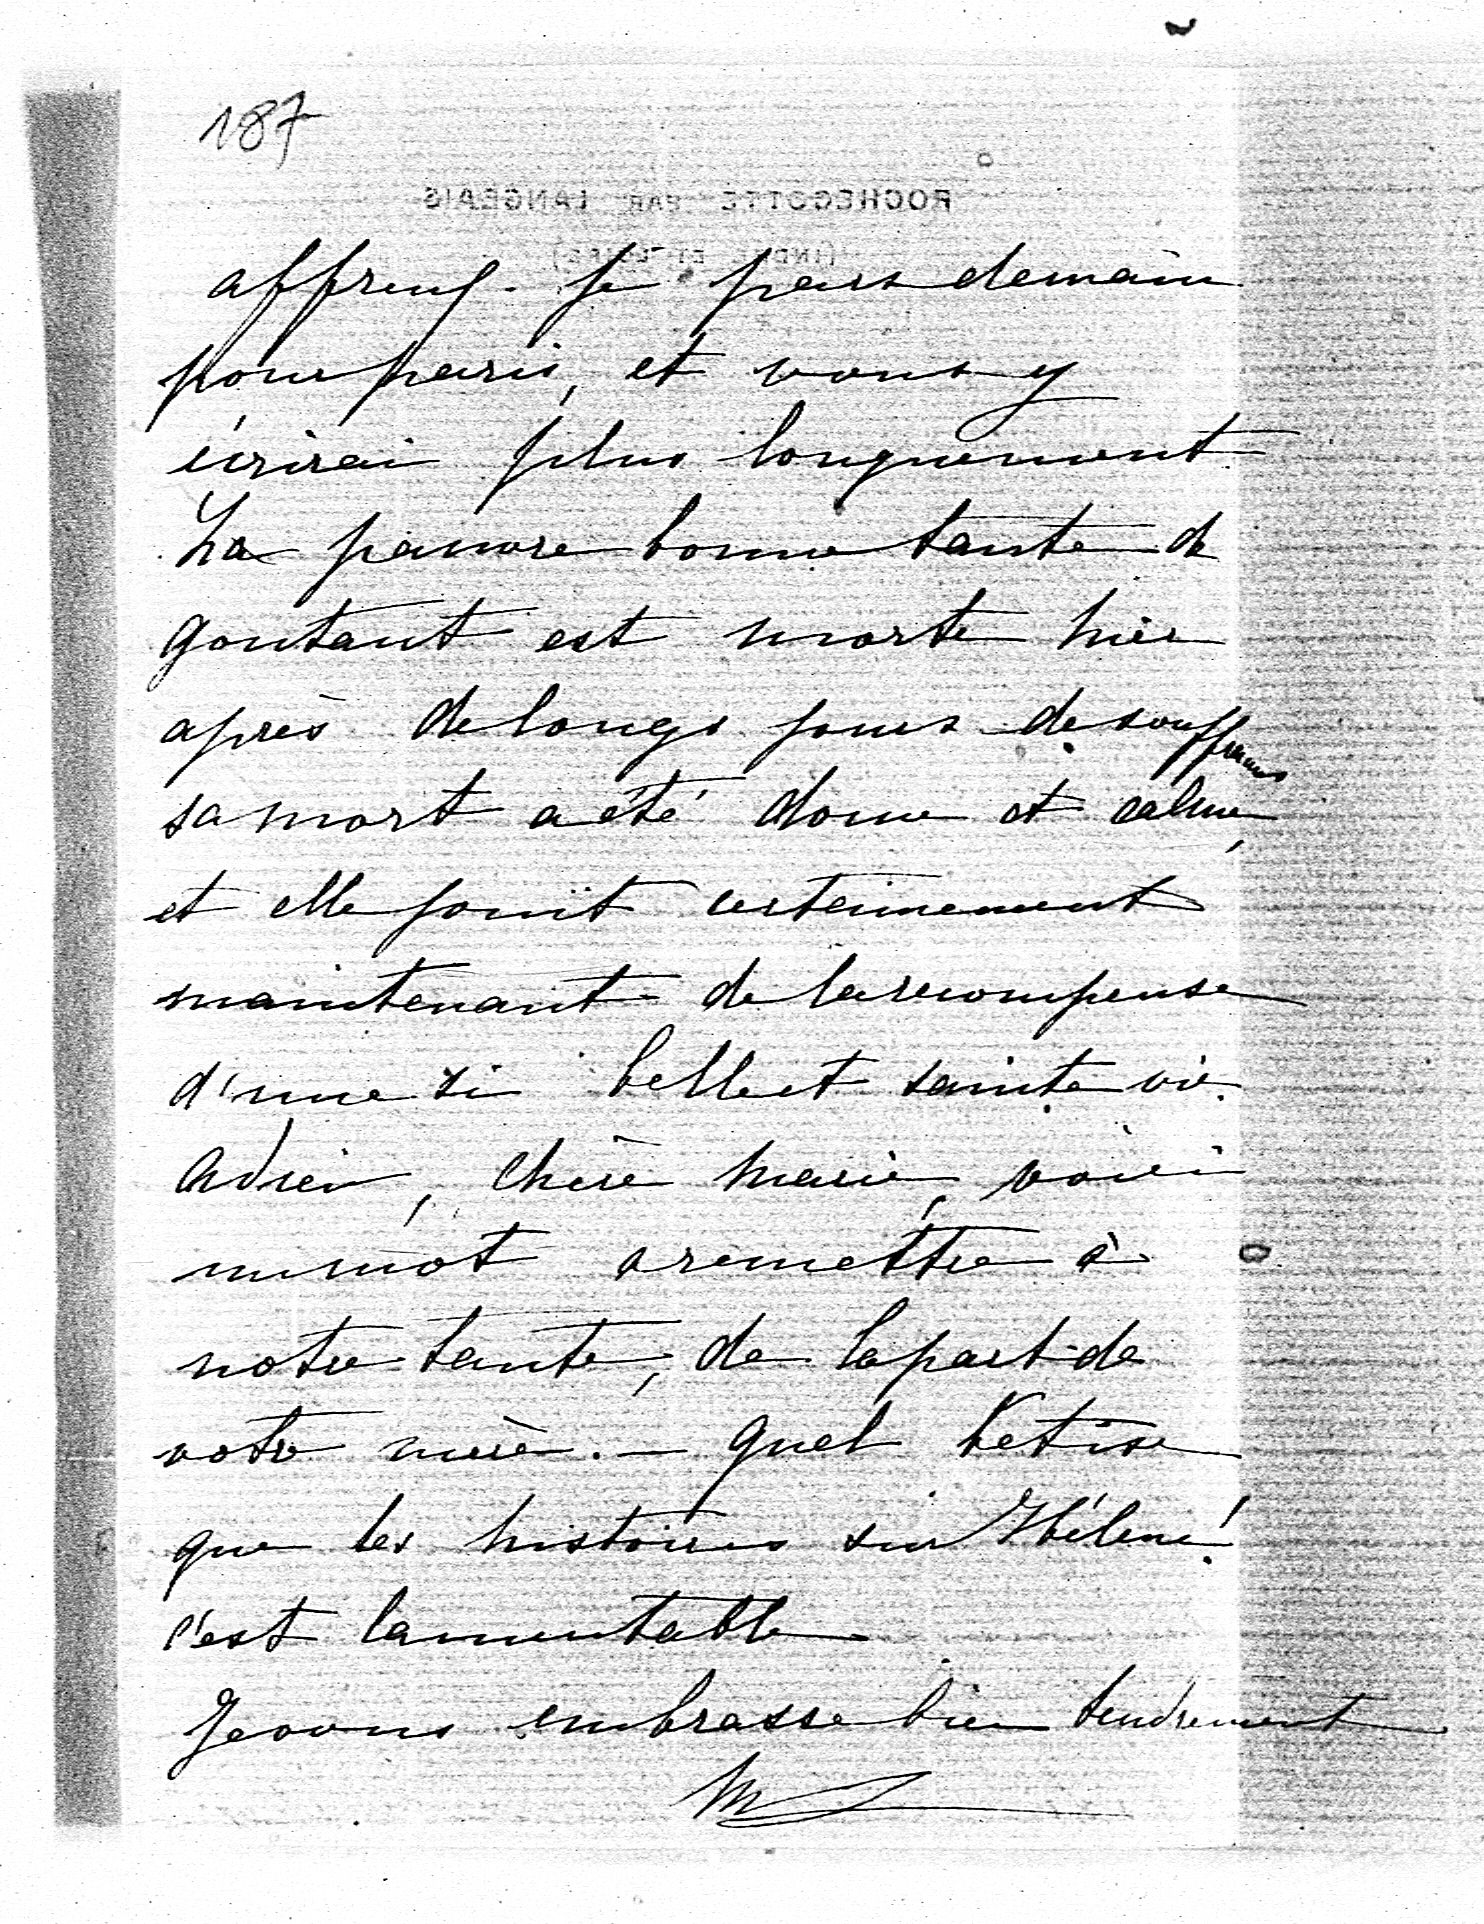 187
ROCHECOTTE PAR LANGEAIS
(INDRE ET LOIRE)
affreux. Je pars demain
pour paris, et vous y
écrirai plus longuement
La pauvre bonne tante de
Gontaut est morte hier
après de longs jours de souffrances
sa mort a été douce et calme,
et elle jouit certainement
maintenant de la recompense
d'une si belle et sainte vie.
Adieu, chère Marie, voici
un mot a remettre à
notre tante, de la part de
votre mère. — Quel betise
que les histoires sur Hélène!
c'est lamentable
Je vous embrasse bien tendrement
M